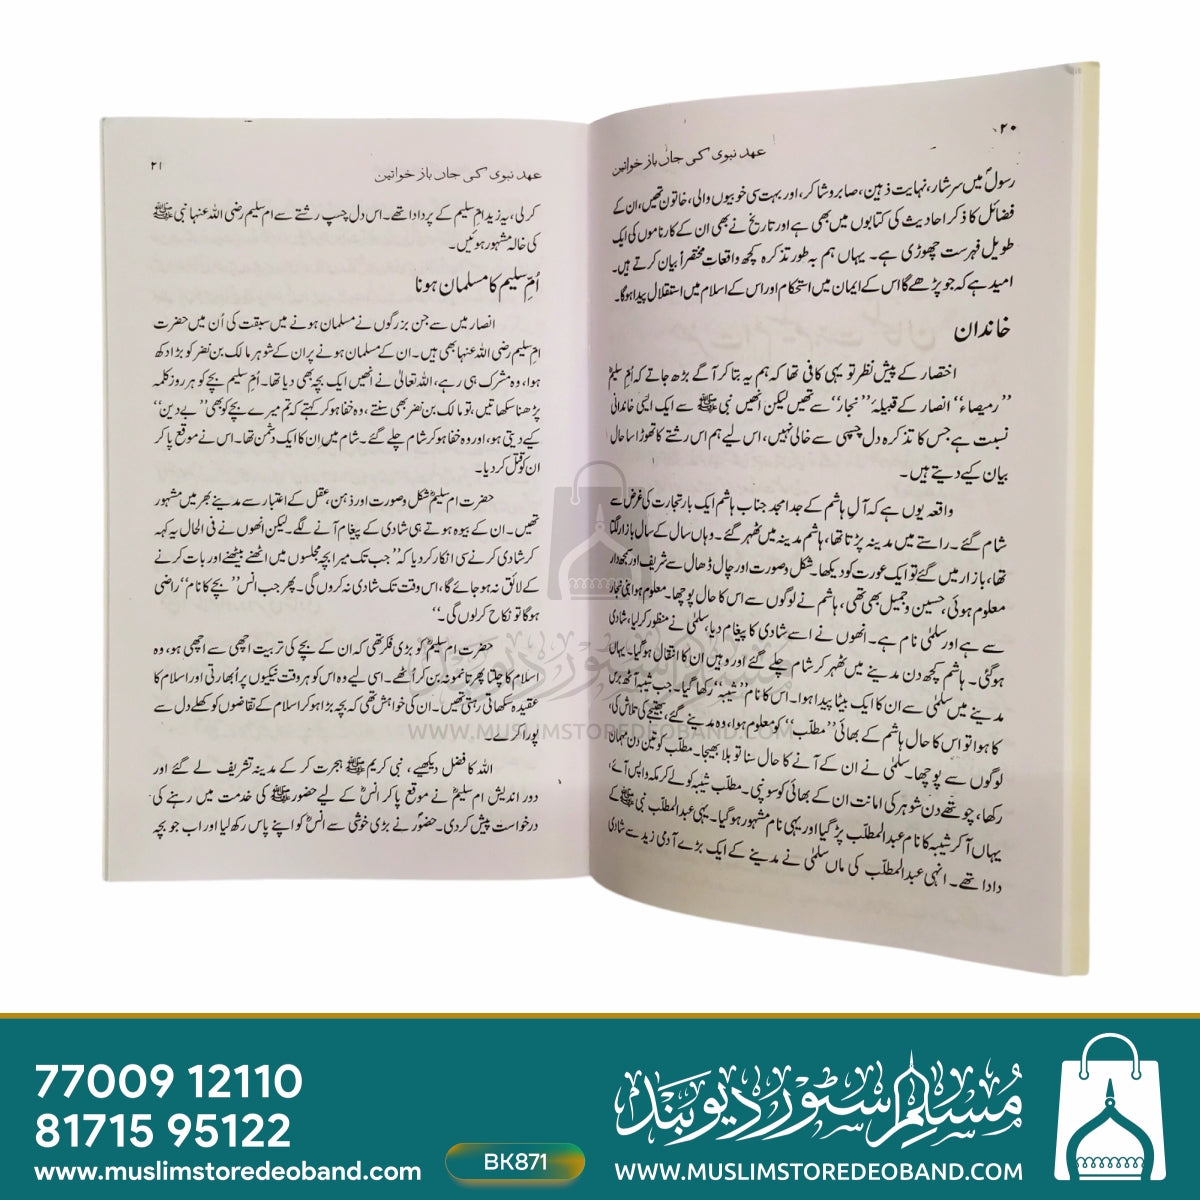 ۲۰
عہد نبوی کی جاں باز خواتین
رسولؐ میں سرشار، نہایت ذہین، صابر و شاکر، اور بہت سی خوبیوں والی، خاتون تھیں، ان کے
فضائل کا ذکر احادیث کی کتابوں میں بھی ہے اور تاریخ نے بھی ان کے کارناموں کی ایک
طویل فہرست چھوڑی ہے۔ یہاں ہم بہ طور تذکرہ کچھ واقعات مختصراً بیان کرتے ہیں۔
امید ہے کہ جو پڑھے گا اس کے ایمان میں استحکام اور اس کے اسلام میں استقلال پیدا ہوگا۔
خاندان
اختصار کے پیش نظر تو یہی کافی تھا کہ ہم یہ بتا کر آگے بڑھ جاتے کہ اُمِ سلیمؓ
”رمیصاء“ انصار کے قبیلۂ ”نجار“ سے تھیں لیکن انھیں نبی ﷺ سے ایک ایسی خاندانی
نسبت ہے جس کا تذکرہ دل چسپی سے خالی نہیں، اس لیے ہم اس رشتے کا تھوڑا سا حال
بیان کیے دیتے ہیں۔
واقعہ یوں ہے کہ آلِ ہاشم کے جد امجد جناب ہاشم ایک بار تجارت کی غرض سے
شام گئے۔ راستے میں مدینہ پڑتا تھا، ہاشم مدینہ میں ٹھہر گئے۔ وہاں سال کے سال بازار لگتا
تھا، بازار میں گئے تو ایک عورت کو دیکھا۔ شکل و صورت اور چال ڈھال سے شریف اور سمجھدار
معلوم ہوئی، حسین و جمیل بھی تھی، ہاشم نے لوگوں سے اس کا حال پوچھا۔ معلوم ہوا بنی نجار
سے ہے اور سلمٰی نام ہے۔ انھوں نے اسے شادی کا پیغام دیا، سلمٰی نے منظور کر لیا، شادی
ہوگئی۔ ہاشم کچھ دن مدینے میں ٹھہر کر شام چلے گئے اور وہیں ان کا انتقال ہوگیا۔ یہاں
مدینے میں سلمٰی سے ان کا ایک بیٹا پیدا ہوا۔ اس کا نام ”شیبہ“ رکھا گیا۔ جب شیبہ آٹھ برس
کا ہوا تو اس کا حال ہاشم کے بھائی ”مطلب“ کو معلوم ہوا، وہ مدینے گئے، بھتیجے کی تلاش کی،
لوگوں سے پوچھا۔ سلمٰی نے ان کے آنے کا حال سنا تو بلا بھیجا۔ مطلب کو تین دن مہمان
رکھا، چوتھے دن شوہر کی امانت ان کے بھائی کو سونپی۔ مطلب شیبہ کو لے کر مکہ واپس آئے،
یہاں آکر شیبہ کا نام عبدالمطلب پڑ گیا اور یہی نام مشہور ہوگیا۔ یہی عبدالمطلب نبی ﷺ کے
دادا تھے۔ انہی عبدالمطلب کی ماں سلمٰی نے مدینے کے ایک بڑے آدمی زید سے شادی
۲۱
عہد نبوی کی جاں باز خواتین
کر لی، یہ زید امِ سلیم کے پردادا تھے۔ اس دل چسپ رشتے سے ام سلیم رضی اللہ عنہا نبی ﷺ
کی خالہ مشہور ہوئیں۔
اُمِّ سلیم کا مسلمان ہونا
انصار میں سے جن بزرگوں نے مسلمان ہونے میں سبقت کی اُن میں حضرت
امِ سلیم رضی اللہ عنہا بھی ہیں۔ ان کے مسلمان ہونے پر ان کے شوہر مالک بن نضر کو بڑا دکھ
ہوا، وہ مشرک ہی رہے، اللہ تعالیٰ نے انھیں ایک بچہ بھی دیا تھا۔ اُمِّ سلیم بچے کو ہر روز کلمہ
پڑھنا سکھاتیں، تو مالک بن نضر بھی سنتے، وہ خفا ہو کر کہتے کہ تم میرے بچے کو بھی ”بے دین“
کیے دیتی ہو، اور وہ خفا ہو کر شام چلے گئے۔ شام میں اِن کا ایک دشمن تھا۔ اس نے موقع پاکر
ان کو قتل کر دیا۔
حضرت ام سلیمؓ شکل و صورت اور ذہن، عقل کے اعتبار سے مدینے بھر میں مشہور
تھیں۔ ان کے بیوہ ہوتے ہی شادی کے پیغام آنے لگے۔ لیکن انھوں نے فی الحال یہ کہہ
کر شادی کرنے سی انکار کر دیا کہ ”جب تک میرا بچہ مجلسوں میں اٹھنے بیٹھنے اور بات کرنے
کے لائق نہ ہو جائے گا، اس وقت تک شادی نہ کروں گی۔ پھر جب انس“ بچے کا نام“ راضی
ہوگا تو نکاح کرلوں گی۔“
حضرت ام سلیمؓ کو بڑی فکر تھی کہ ان کے بچے کی تربیت اچھی سے اچھی ہو، وہ
اسلام کا چلتا پھرتا نمونہ بن کر اُٹھے۔ اسی لیے وہ اس کو ہر وقت نیکیوں پر اُبھارتی اور اسلام کا
عقیدہ سکھاتی رہتی تھیں۔ ان کی خواہش تھی کہ بچہ بڑا ہو کر اسلام کے تقاضوں کو کھلے دل سے
پورا کرے۔
اللہ کا فضل دیکھیے، نبی کریم ﷺ ہجرت کر کے مدینہ تشریف لے گئے اور
دور اندیش ام سلیمؓ نے موقع پاکر انسؓ کے لیے حضور ﷺ کی خدمت میں رہنے کی
درخواست پیش کر دی۔ حضورؐ نے بڑی خوشی سے انسؓ کو اپنے پاس رکھ لیا اور اب جو بچہ
مسلم سٹور دیوبند
WWW.MUSLIMSTOREDEOBAND.COM
77009 12110
81715 95122
www.muslimstoredeoband.com
BK871
مسلم سٹور دیوبند
WWW.MUSLIMSTOREDEOBAND.COM